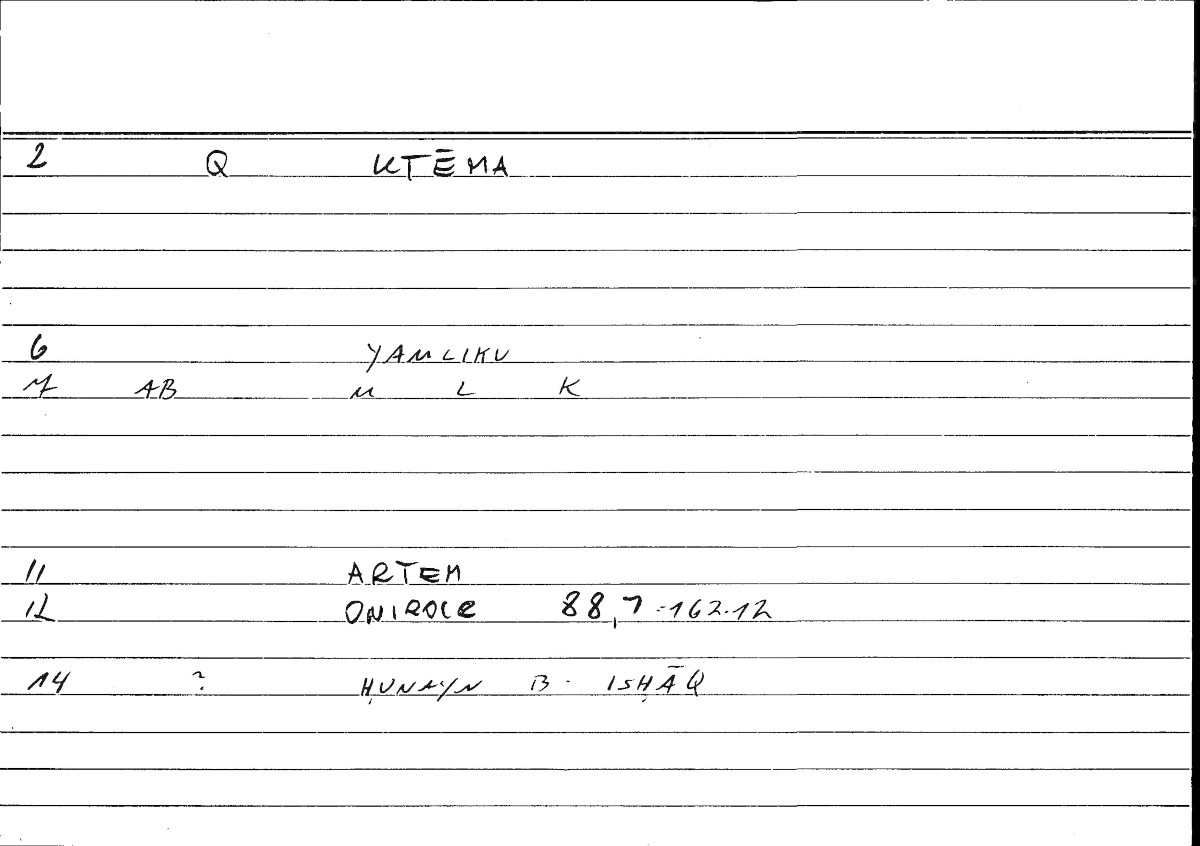 2 Q KTĒMA
6 YAMLIKU
7 AB M L K
11 ARTEM
12 ONIROCR 88,7=162.12
14 ? ḤUNAYN B. ISḤĀQ